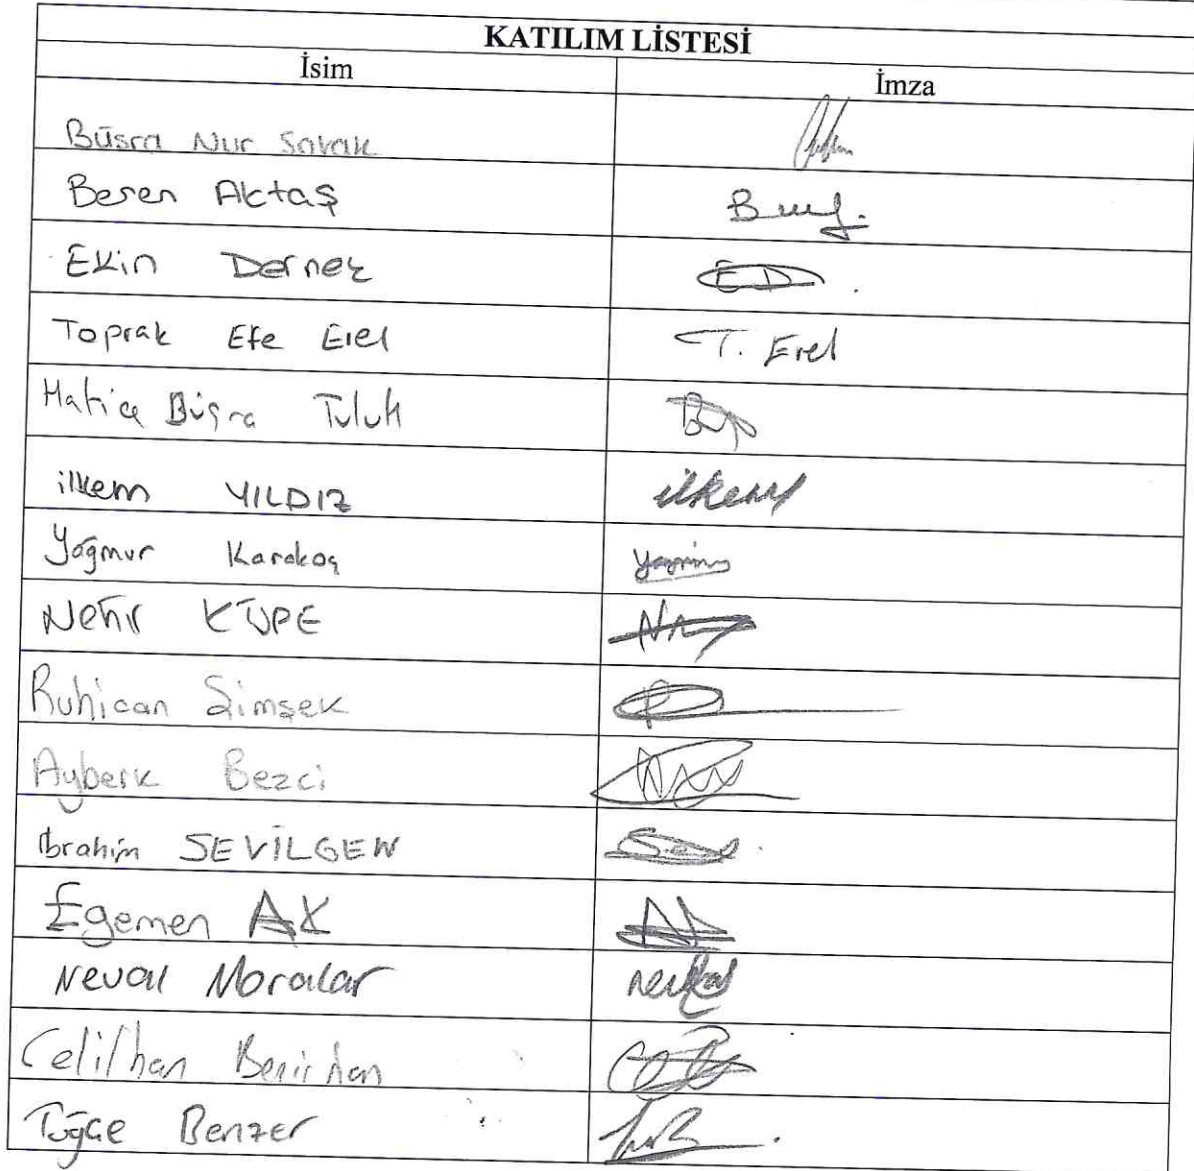 KATILIM LİSTESİ
İsim İmza
Büşra Nur
Beren Aktaş
Ekin Dernek
Toprak Efe Erel T. Erel
Hatice Büşra Tuluk
ilkem YILDIZ ilkem
Yağmur Karakoç
Nehir KÜPE
Ruhican Şimşek
Ayberk Bezci
İbrahim SEVİLGEN
Egemen AK
Neval Moralar
Tuğçe Benzer